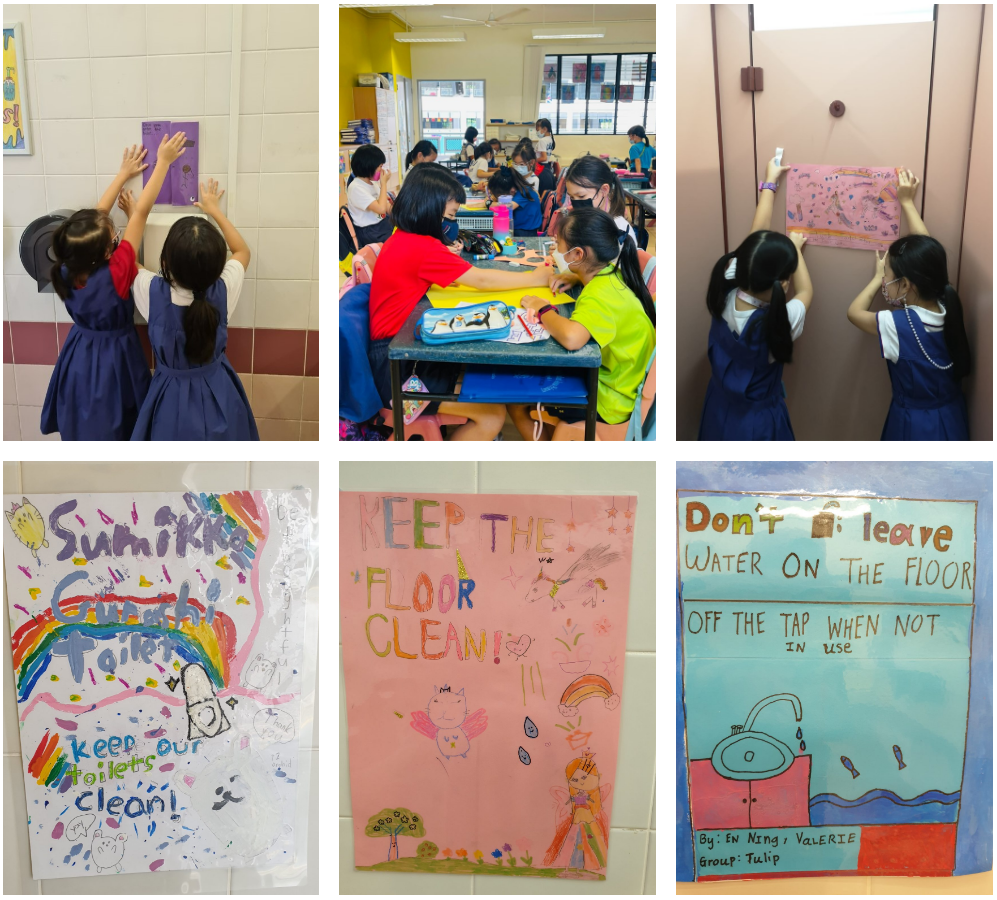 Sumikko
Gurashi
Toilet
Thank
you!
keep our
toilets
clean!
KEEP THE
FLOOR
CLEAN!
Don't leave
WATER ON THE FLOOR
OFF THE TAP WHEN NOT
IN USE
By: EN NING, VALERIE
Group: Tulip